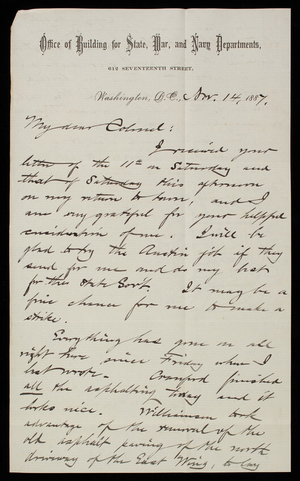 Office of Building for State, War, and Navy Departments,
612 SEVENTEENTH STREET,
Washington, D.C., Nov. 14, 1887.
My dear Colonel:
I received your
letter of the 11th on Saturday and
that of Saturday this afternoon
on my return to town, and I
am very grateful for your helpful
consideration of me. I will be
glad to try the Austin job if they
send for me and do my best
for the State Govt. It may be a
fine chance for me to make a
strike.
Everything has gone on all
right here since Friday when I
last wrote. Cranford finished
all the asphalting today and it
looks nice. Williamson took
advantage of the removal of the
old asphalt paving of the north
driveway of the East Wing, to lay